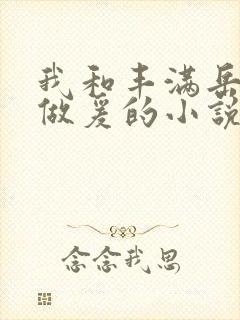 我和丰满岳
做爰的小说
念念我思